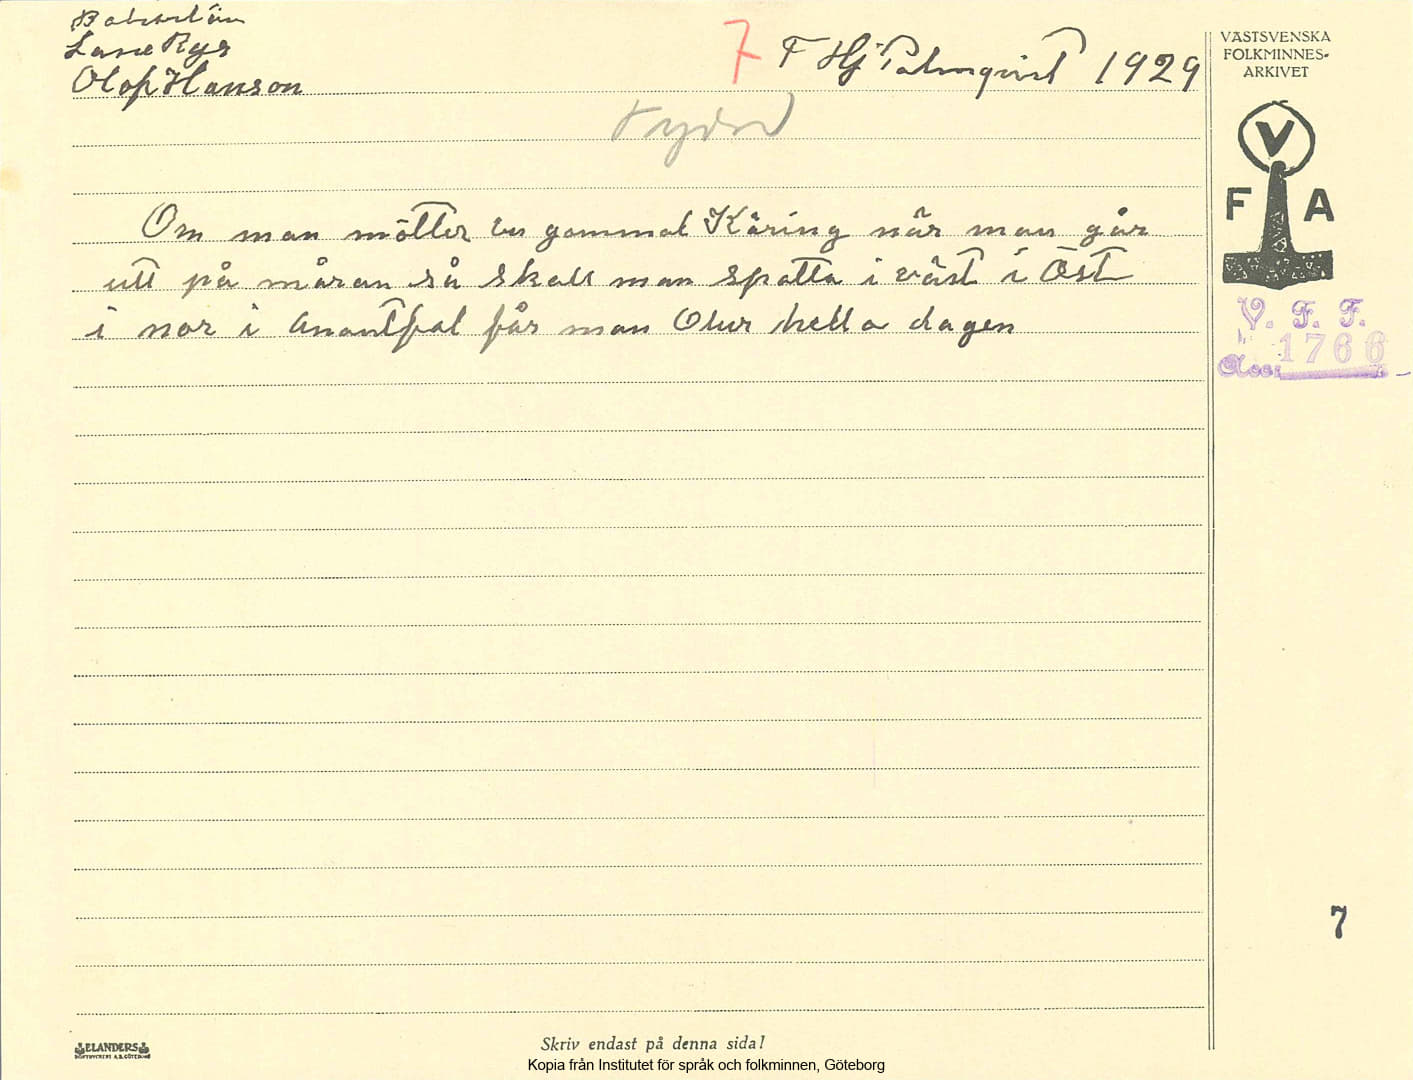 Bohuslän
Lane Ryr
Olof Hanson
7 F Hj Palmqvist 1929
VÄSTSVENSKA
FOLKMINNES-
ARKIVET
V
F A
Om man mötter en gammal Käring når man går
utt på måran så skall man spotta i väst i Öst
i nor i anantfal får man Otur hella dagen
V. F. F.
Acc: 1766
7
ELANDERS
BOKTRYCKERI A.B. GÖTEBORG
Skriv endast på denna sida!
Kopia från Institutet för språk och folkminnen, Göteborg